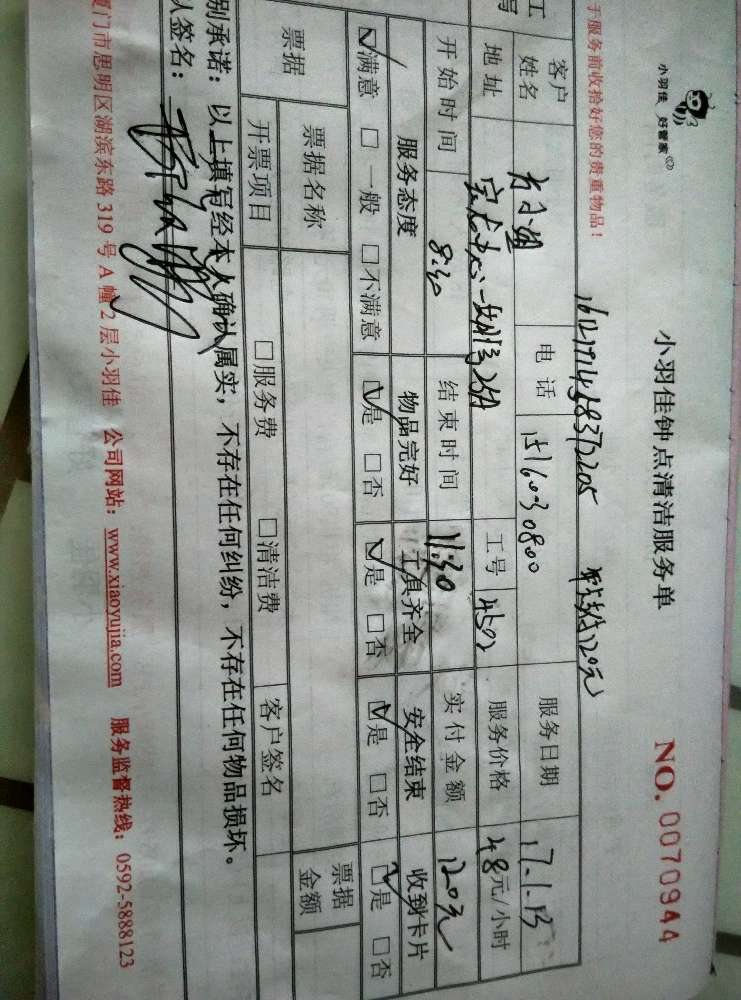 小羽佳 好管家
小羽佳钟点清洁服务单
NO. 0070944
于服务前收拾好您的贵重物品！
客户姓名
电话
服务日期 17.1.13
地址
工号 4502
服务价格 48元/小时
开始时间 8:30 结束时间 11:30 实付金额 120元
服务态度 物品完好 工具齐全 安全结束 收到卡片
☑满意 □一般 □不满意 ☑是 □否 ☑是 □否 ☑是 □否 ☑是 □否
票据 票据名称 票据金额
开票项目 □服务费 □清洁费 客户签名
别承诺：以上填写经本人确认属实，不存在任何纠纷，不存在任何物品损坏。
人签名：
厦门市思明区湖滨东路319号A幢2层小羽佳 公司网站：www.xiaoyujia.com 服务监督热线：0592-5888123